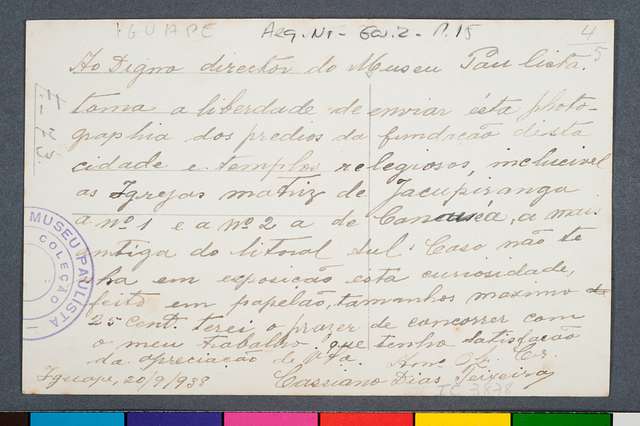 IGUAPE Arq. Nº - Gav. 2 - P. 15
4/5
Ao Digno director do Museu Paulista.
toma a liberdade de enviar ésta photo-
graphia dos predios da fundação désta
cidade e templos relegiosos, inclucivel
as Igrejas matriz de Jacupiranga
a nº 1 e a nº 2 a de Cananéa, a mais
antiga do litoral sul. Caso não te
nha em exposição esta curiosidade,
feito em papelão, tamanhos maximo de
25 cent. terei o prazer de concorrer com
o meu trabalho. que tenho satisfação
da apreciação de V. Sa.
Iguape, 20/9/938
Cassiano Dias Teixeira
MUSEU PAULISTA
COLEÇÃO